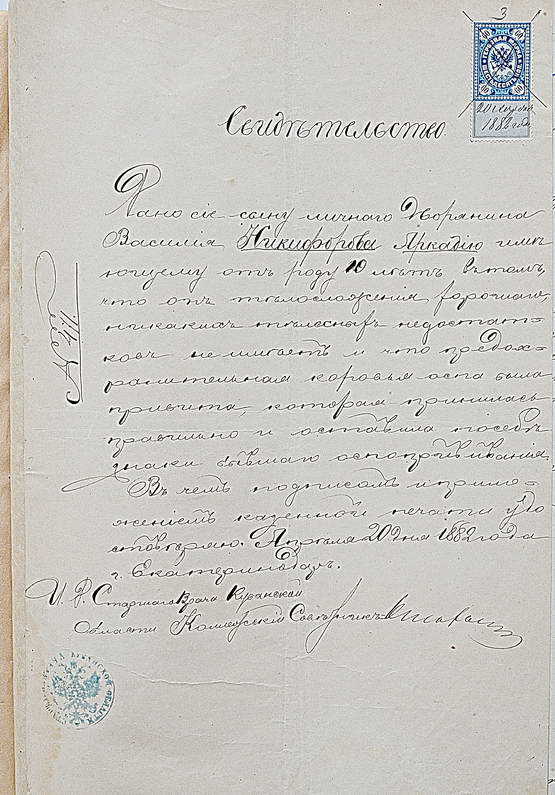 3
60 60
60 60
20 Апреля
1882 года
Свидѣтельство
Дано сіе сыну личнаго Дворянина
Василія Никифорова Аркадію имѣ
ющему отъ роду 10 лѣтъ въ томъ,
что онъ тѣлосложенія хорошаго,
никакихъ тѣлесныхъ недостат-
ковъ не имѣетъ и что предох-
ранительная коровья оспа была
привита, которая принялась
правильно и оставила послѣ себя
знаки бывшаго оспопрививанія
Въ чемъ подписомъ и прило-
женіемъ казенной печати удо
стовѣряю. Апрѣля 20 дня 1882 года
г. Екатеринодаръ.
И. Д. Старшаго Врача Кубанской
Области Коллежскій Совѣтникъ
№